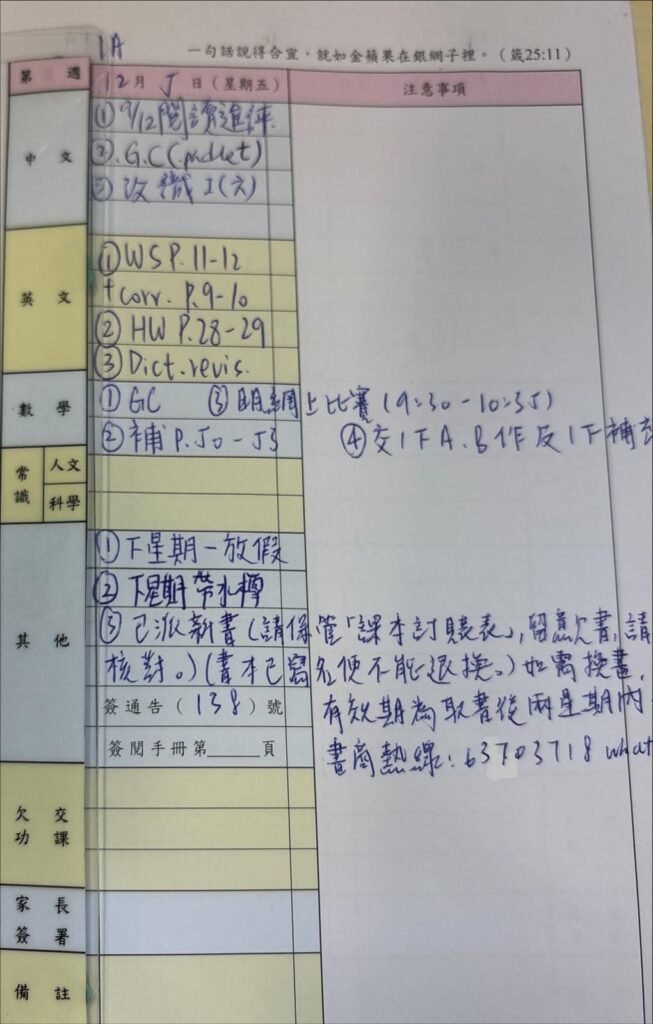 1A
一句話說得合宜，就如金蘋果在銀網子裡。（箴25:11）
第 週
12月 5 日（星期五）
注意事項
中文
① 9/12閱讀進評
② G.C(padlet)
③ 改識工(六)
英文
① WS P.11-12
+corr. P.9-10
② HW P.28-29
③ Dict.revis.
數學
① GC ③ 網上比賽 (9:30-10:35)
② 補 P.50-53 ④ 交1下A.B作及1下補充
常識
人文
科學
其他
① 下星期一放假
② 下星期帶水樽
③ 已派新書(請保管「課本訂購表」,留意欠書,請
核對。)(書本已寫名便不能退換。)如需換書,
簽通告（138）號 有效期為取書後兩星期內
簽閱手冊第______頁 書商熱線: 63703718 what
欠交功課
家長簽署
備註